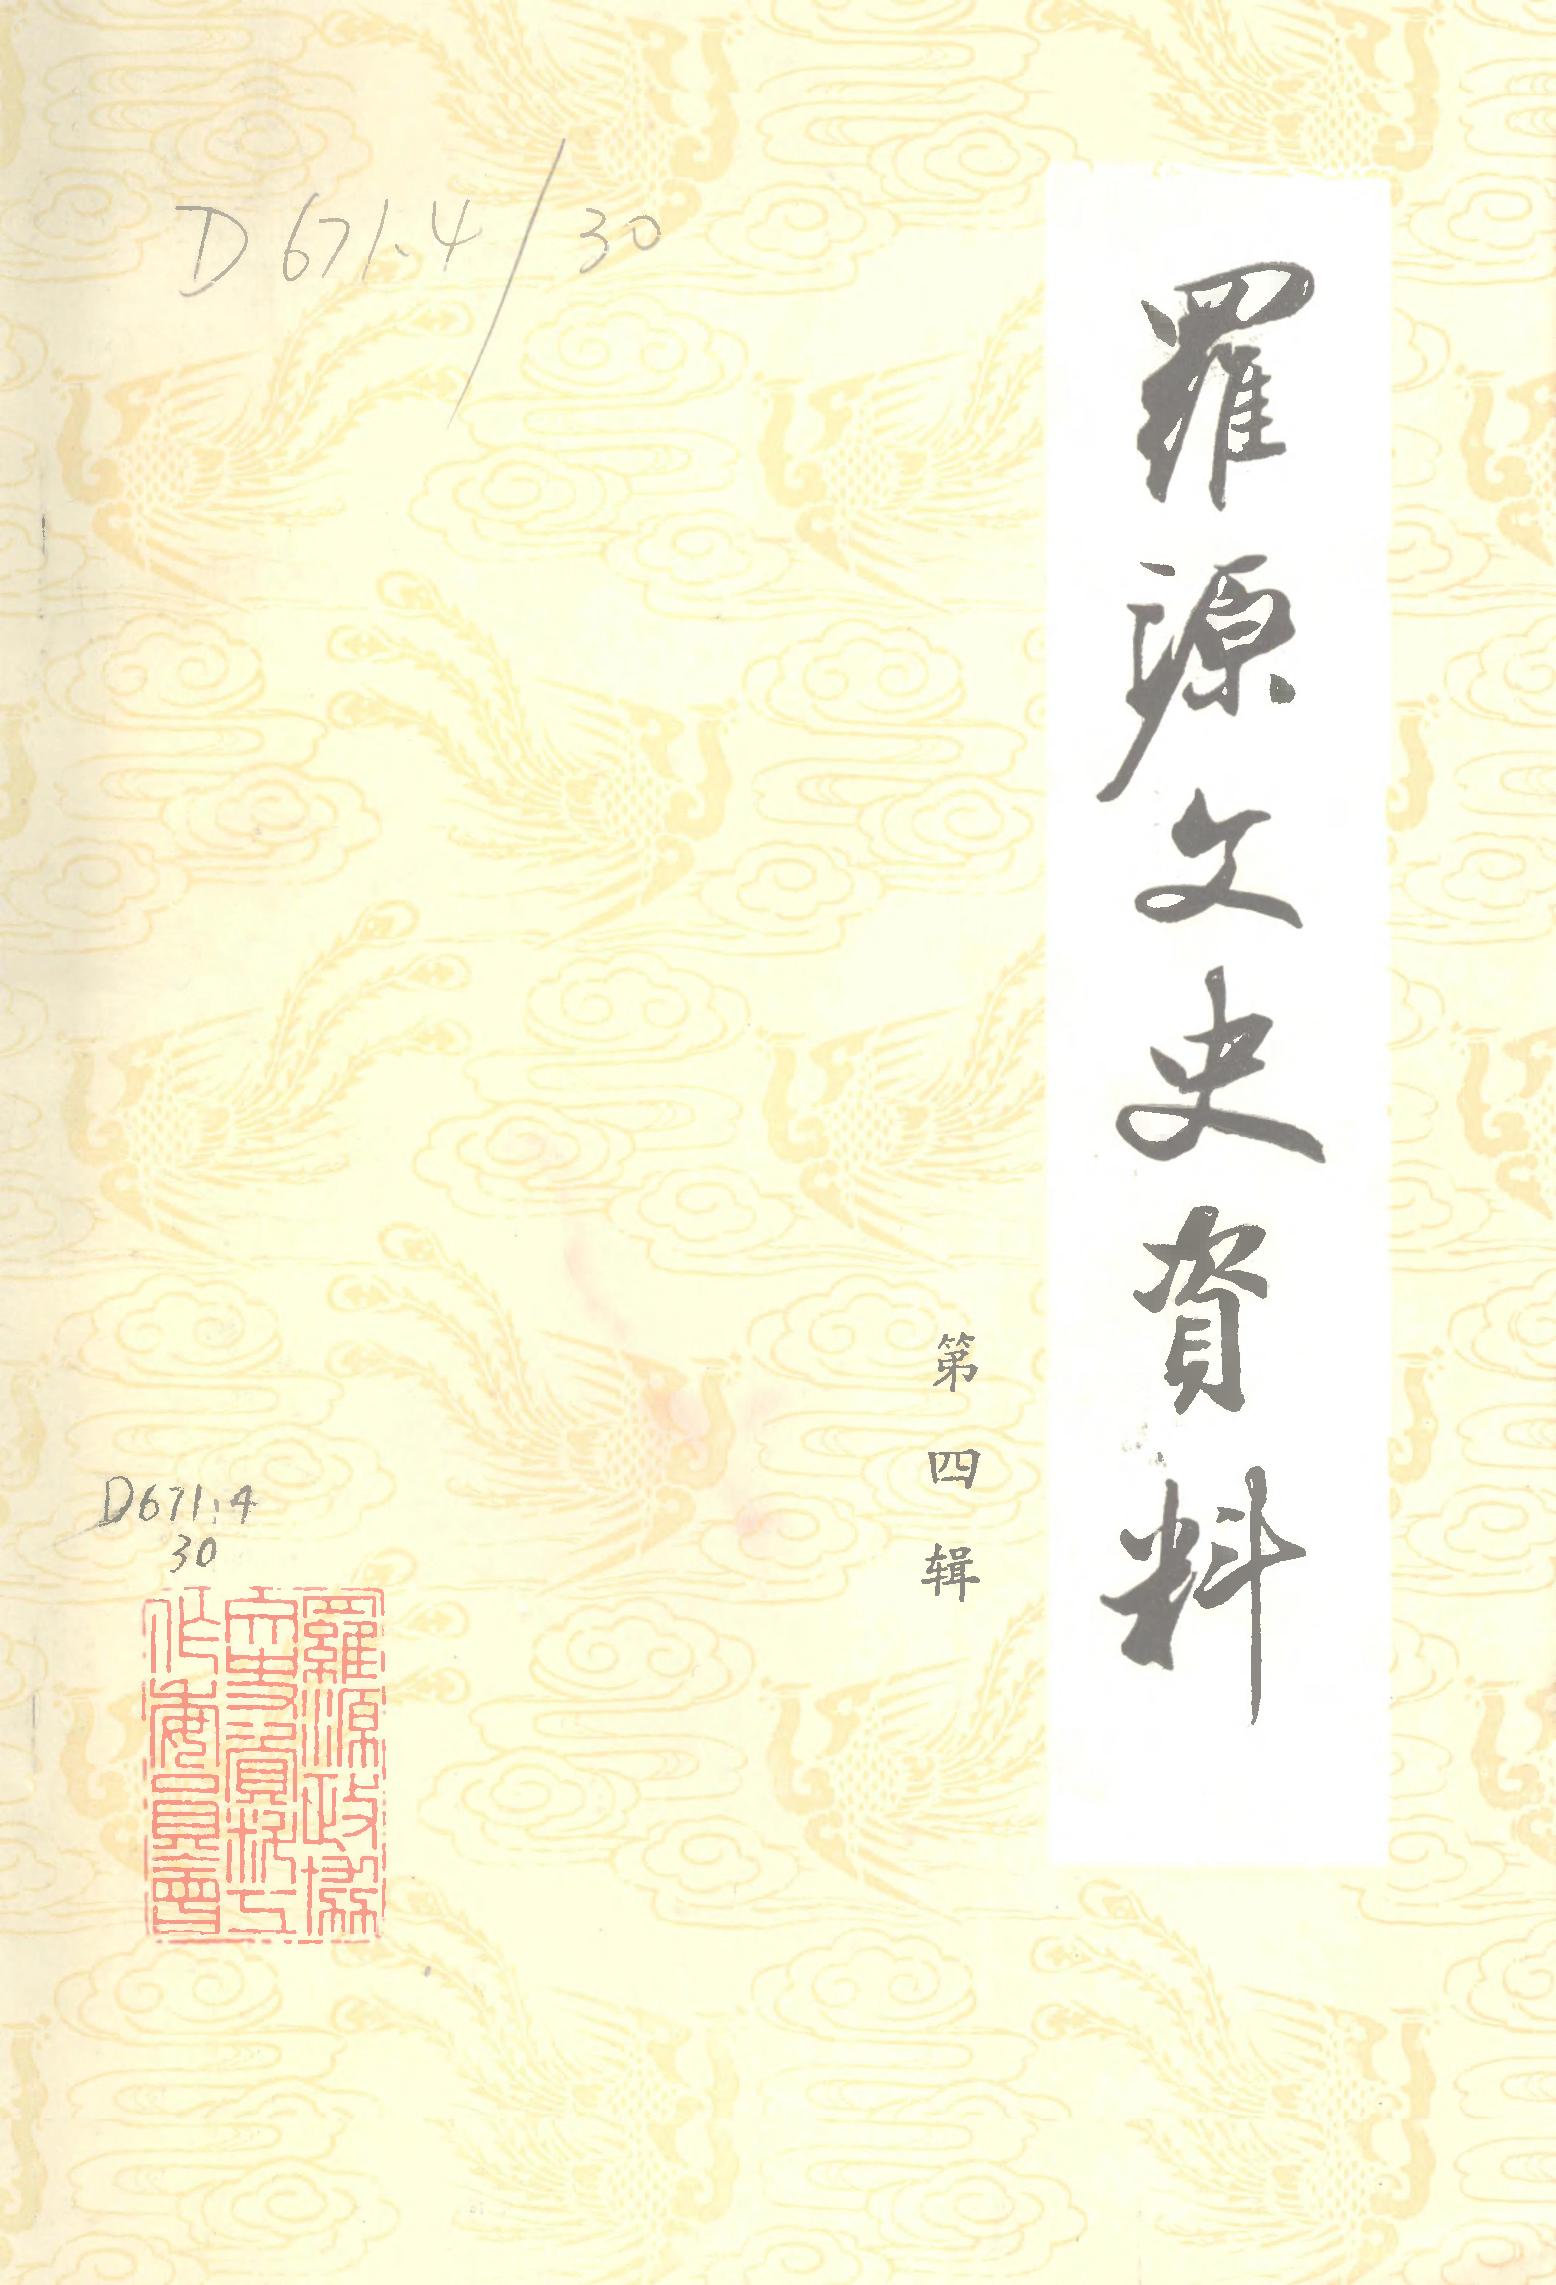 D671.4/30
羅源文史資料
第四辑
D671.4
30
羅源政協
文史資料工
作委員會